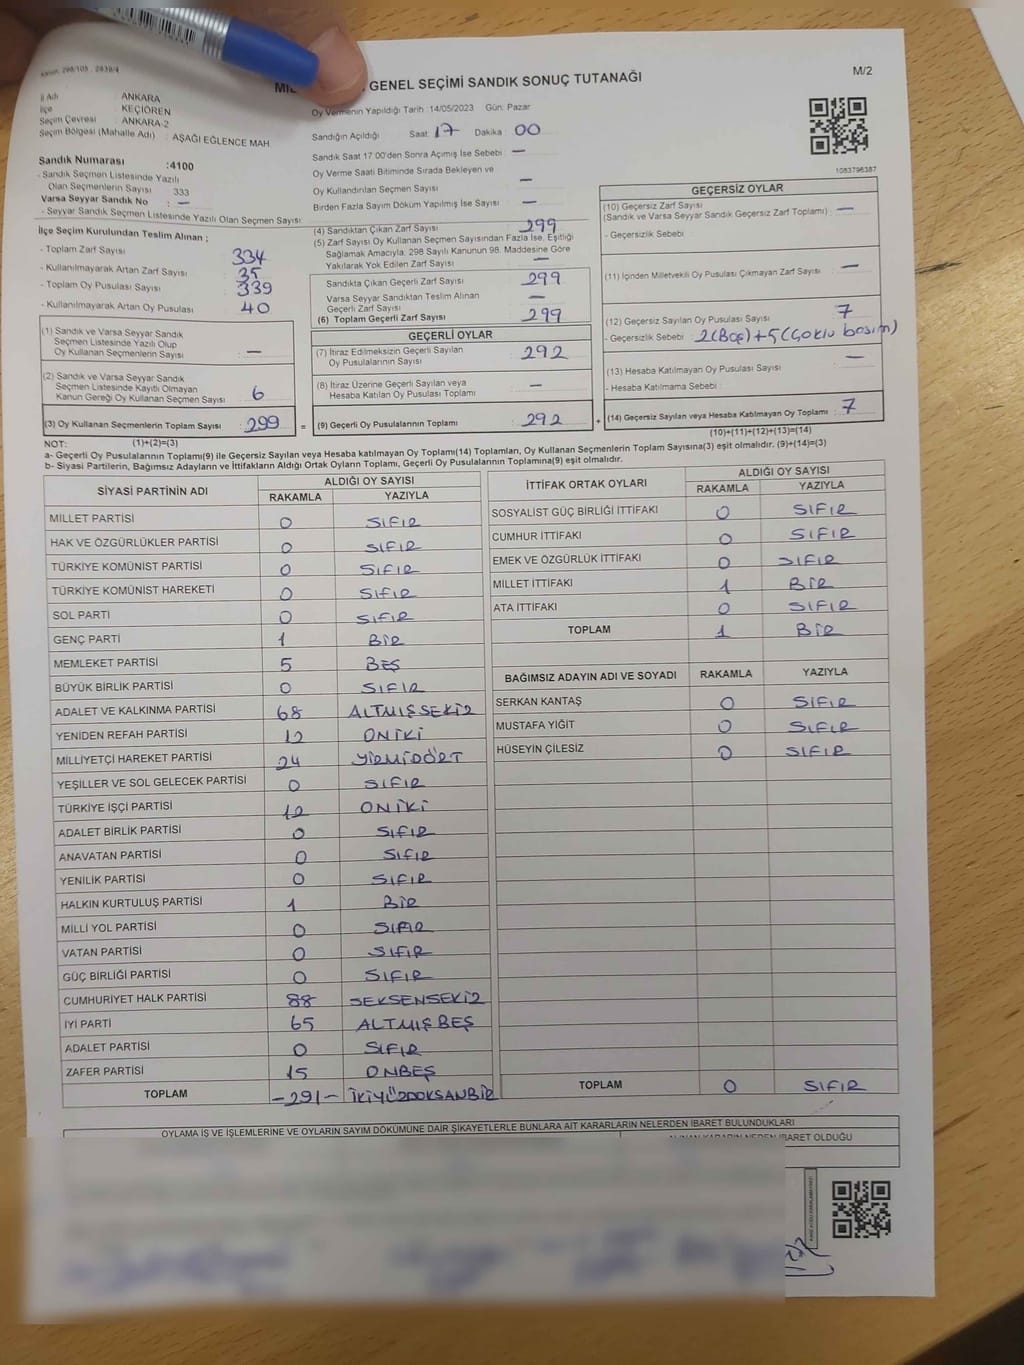 Kanun: 298/105 - 2839/4
GENEL SEÇİMİ SANDIK SONUÇ TUTANAĞI
M/2
İl Adı : ANKARA
İlçe : KEÇİÖREN
Seçim Çevresi : ANKARA-2
Seçim Bölgesi (Mahalle Adı) : AŞAĞI EĞLENCE MAH
Sandık Numarası :4100
- Sandık Seçmen Listesinde Yazılı
Olan Seçmenlerin Sayısı 333
Varsa Seyyar Sandık No : —
- Seyyar Sandık Seçmen Listesinde Yazılı Olan Seçmen Sayısı:
İlçe Seçim Kurulundan Teslim Alınan ;
- Toplam Zarf Sayısı : 334
- Kullanılmayarak Artan Zarf Sayısı : 35
- Toplam Oy Pusulası Sayısı : 339
- Kullanılmayarak Artan Oy Pusulası : 40
(1) Sandık ve Varsa Seyyar Sandık
Seçmen Listesinde Yazılı Olup
Oy Kullanan Seçmenlerin Sayısı : —
(2) Sandık ve Varsa Seyyar Sandık
Seçmen Listesinde Kayıtlı Olmayan
Kanun Gereği Oy Kullanan Seçmen Sayısı : 6
(3) Oy Kullanan Seçmenlerin Toplam Sayısı : 299 =
Oy Vermenin Yapıldığı Tarih : 14/05/2023 Gün: Pazar
Sandığın Açıldığı Saat: 17 Dakika : 00
Sandık Saat 17:00'den Sonra Açımış İse Sebebi : —
Oy Verme Saati Bitiminde Sırada Bekleyen ve
Oy Kullandırılan Seçmen Sayısı : —
Birden Fazla Sayım Döküm Yapılmış İse Sayısı : —
(4) Sandıktan Çıkan Zarf Sayısı : 299
(5) Zarf Sayısı Oy Kullanan Seçmen Sayısından Fazla İse, Eşitliği
Sağlamak Amacıyla, 298 Sayılı Kanunun 98. Maddesine Göre
Yakılarak Yok Edilen Zarf Sayısı : —
Sandıkta Çıkan Geçerli Zarf Sayısı : 299
Varsa Seyyar Sandıktan Teslim Alınan
Geçerli Zarf Sayısı : —
(6) Toplam Geçerli Zarf Sayısı : 299
GEÇERLİ OYLAR
(7) İtiraz Edilmeksizin Geçerli Sayılan
Oy Pusulalarının Sayısı : 292
(8) İtiraz Üzerine Geçerli Sayılan veya
Hesaba Katılan Oy Pusulası Toplamı : —
(9) Geçerli Oy Pusulalarının Toplamı : 292 +
1083796387
GEÇERSİZ OYLAR
(10) Geçersiz Zarf Sayısı
(Sandık ve Varsa Seyyar Sandık Geçersiz Zarf Toplamı) : —
- Geçersizlik Sebebi :
(11) İçinden Milletvekili Oy Pusulası Çıkmayan Zarf Sayısı : —
(12) Geçersiz Sayılan Oy Pusulası Sayısı : 7
- Geçersizlik Sebebi : 2(Boş)+5(Çoklu basım)
(13) Hesaba Katılmayan Oy Pusulası Sayısı : —
- Hesaba Katılmama Sebebi :
(14) Geçersiz Sayılan veya Hesaba Katılmayan Oy Toplamı : 7
NOT: (1)+(2)=(3) (10)+(11)+(12)+(13)=(14)
a- Geçerli Oy Pusulalarının Toplamı(9) ile Geçersiz Sayılan veya Hesaba katılmayan Oy Toplamı(14) Toplamları, Oy Kullanan Seçmenlerin Toplam Sayısına(3) eşit olmalıdır. (9)+(14)=(3)
b- Siyasi Partilerin, Bağımsız Adayların ve İttifakların Aldığı Ortak Oyların Toplamı, Geçerli Oy Pusulalarının Toplamına(9) eşit olmalıdır.
SİYASİ PARTİNİN ADI ALDIĞI OY SAYISI
RAKAMLA YAZIYLA
MİLLET PARTİSİ 0 SIFIR
HAK VE ÖZGÜRLÜKLER PARTİSİ 0 SIFIR
TÜRKİYE KOMÜNİST PARTİSİ 0 SIFIR
TÜRKİYE KOMÜNİST HAREKETİ 0 SIFIR
SOL PARTİ 0 SIFIR
GENÇ PARTİ 1 BİR
MEMLEKET PARTİSİ 5 BEŞ
BÜYÜK BİRLİK PARTİSİ 0 SIFIR
ADALET VE KALKINMA PARTİSİ 68 ALTMIŞSEKİZ
YENİDEN REFAH PARTİSİ 12 ONİKİ
MİLLİYETÇİ HAREKET PARTİSİ 24 YİRMİDÖRT
YEŞİLLER VE SOL GELECEK PARTİSİ 0 SIFIR
TÜRKİYE İŞÇİ PARTİSİ 12 ONİKİ
ADALET BİRLİK PARTİSİ 0 SIFIR
ANAVATAN PARTİSİ 0 SIFIR
YENİLİK PARTİSİ 0 SIFIR
HALKIN KURTULUŞ PARTİSİ 1 BİR
MİLLİ YOL PARTİSİ 0 SIFIR
VATAN PARTİSİ 0 SIFIR
GÜÇ BİRLİĞİ PARTİSİ 0 SIFIR
CUMHURİYET HALK PARTİSİ 88 SEKSENSEKİZ
İYİ PARTİ 65 ALTMIŞBEŞ
ADALET PARTİSİ 0 SIFIR
ZAFER PARTİSİ 15 ONBEŞ
TOPLAM -291- İKİYÜZDOKSANBİR
İTTİFAK ORTAK OYLARI ALDIĞI OY SAYISI
RAKAMLA YAZIYLA
SOSYALİST GÜÇ BİRLİĞİ İTTİFAKI 0 SIFIR
CUMHUR İTTİFAKI 0 SIFIR
EMEK VE ÖZGÜRLÜK İTTİFAKI 0 SIFIR
MİLLET İTTİFAKI 1 BİR
ATA İTTİFAKI 0 SIFIR
TOPLAM 1 BİR
BAĞIMSIZ ADAYIN ADI VE SOYADI RAKAMLA YAZIYLA
SERKAN KANTAŞ 0 SIFIR
MUSTAFA YİĞİT 0 SIFIR
HÜSEYİN ÇİLESİZ 0 SIFIR
TOPLAM 0 SIFIR
OYLAMA İŞ VE İŞLEMLERİNE VE OYLARIN SAYIM DÖKÜMÜNE DAİR ŞİKAYETLERLE BUNLARA AİT KARARLARIN NELERDEN İBARET BULUNDUKLARI
ALINAN KARARIN NEDEN İBARET OLDUĞU